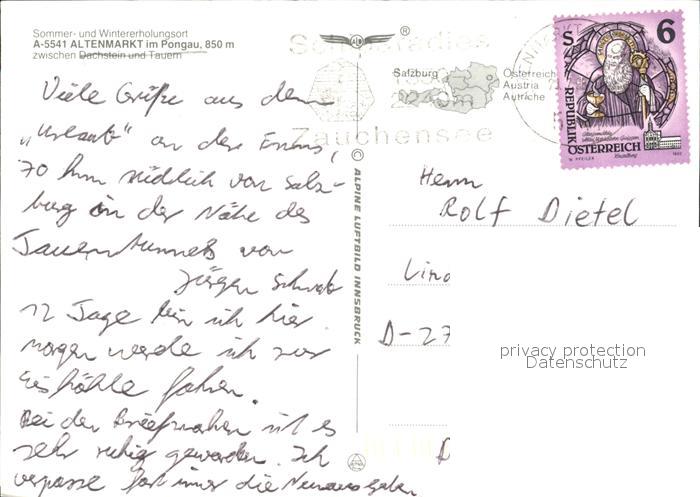 Sommer- und Wintererholungsort
A-5541 ALTENMARKT im Pongau, 850 m
zwischen Dachstein und Tauern
Viele Grüße aus dem
„Urlaub“ an der Enns,
70 km südlich von Salz-
burg in der Nähe des
Tauerntunnels von
Jürgen Schwab
12 Tage bin ich hier.
Morgen werde ich zur
Eishöhle fahren.
Bei den Briefmarken ist es
sehr ruhig geworden. Ich
verpasse fast immer die Neuausgaben
®
Salzburg
Österreich
Austria
Autriche
Zauchensee
© ALPINE LUFTBILD INNSBRUCK
S 6
REPUBLIK
ÖSTERREICH
Herrn
Rolf Dietel
Lind
D-27
privacy protection
Datenschutz